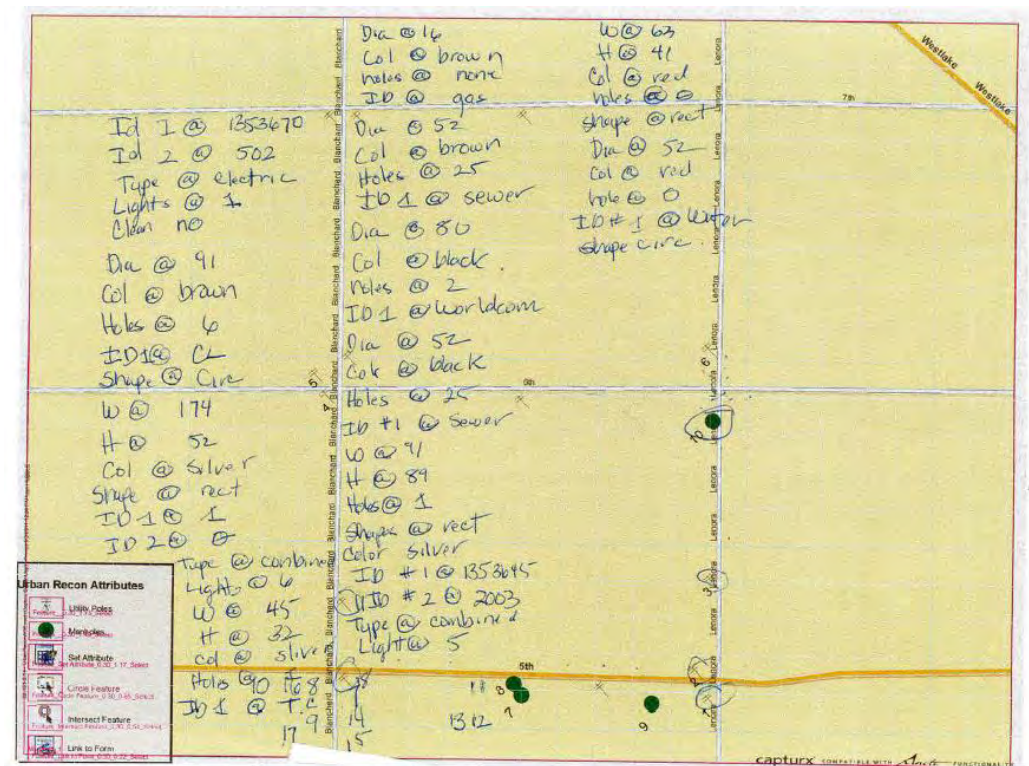 Id 1 @ 1353670
Id 2 @ 502
Type @ electric
Lights @ 1
Clean no
Dia @ 91
Col @ brown
Holes @ 6
ID1@ CL
Shape @ Circ
W @ 174
H @ 52
Col @ silver
Shape @ rect
ID 1 @ 1
ID 2 @ 0
Type @ combined
Lights @ 6
W @ 45
H @ 32
Col @ silver
Holes @
ID 1 @ T.C
17 9
Dia @ 16
Col @ brown
holes @ none
ID @ gas
Dia @ 52
Col @ brown
Holes @ 25
ID 1 @ sewer
Dia @ 80
Col @ black
holes @ 2
ID 1 @ Worldcom
Dia @ 52
Col @ black
Holes @ 25
ID #1 @ Sewer
W @ 91
H @ 89
Holes @ 1
Shape @ rect
Color silver
ID #1 @ 1353645
ID #2 @ 2003
Type @ combined
Light @ 5
14
15
11
13 12
W @ 63
H @ 41
Col @ red
holes @ 0
shape @ rect
Dia @ 52
Col @ red
hole @ 0
ID # 1 @ Water
shape circ.
Westlake Westlake
7th
5th
8
7
9
Blanchard Blanchard Blanchard Blanchard Blanchard Blanchard
Lenora Lenora Lenora Lenora Lenora Lenora
Urban Recon Attributes
Utility Poles
Manholes
Set Attribute
Circle Feature
Intersect Feature
Link to Form
capturx COMPATIBLE WITH Anoto FUNCTIONALITY